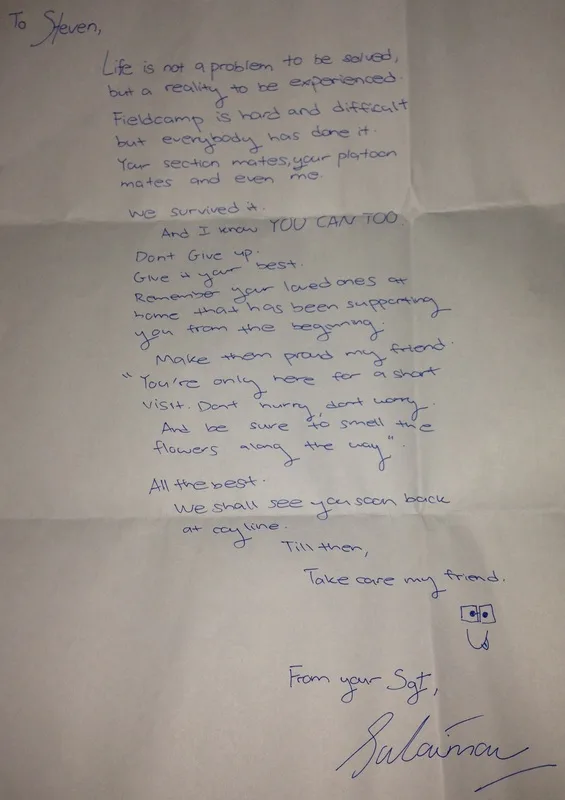 To Steven,
Life is not a problem to be solved,
but a reality to be experienced.
Fieldcamp is hard and difficult
but everybody has done it.
Your section mates, your platoon
mates and even me.
We survived it.
And I know YOU CAN TOO.
Dont Give up.
Give it your best.
Remember your loved ones at
home that has been supporting
you from the beginning.
Make them proud my friend.
"You're only here for a short
visit. Dont hurry, dont worry.
And be sure to smell the
flowers along the way".
All the best.
We shall see you soon back
at coyline.
Till then,
Take care my friend.
From your Sgt,
Sulaiman